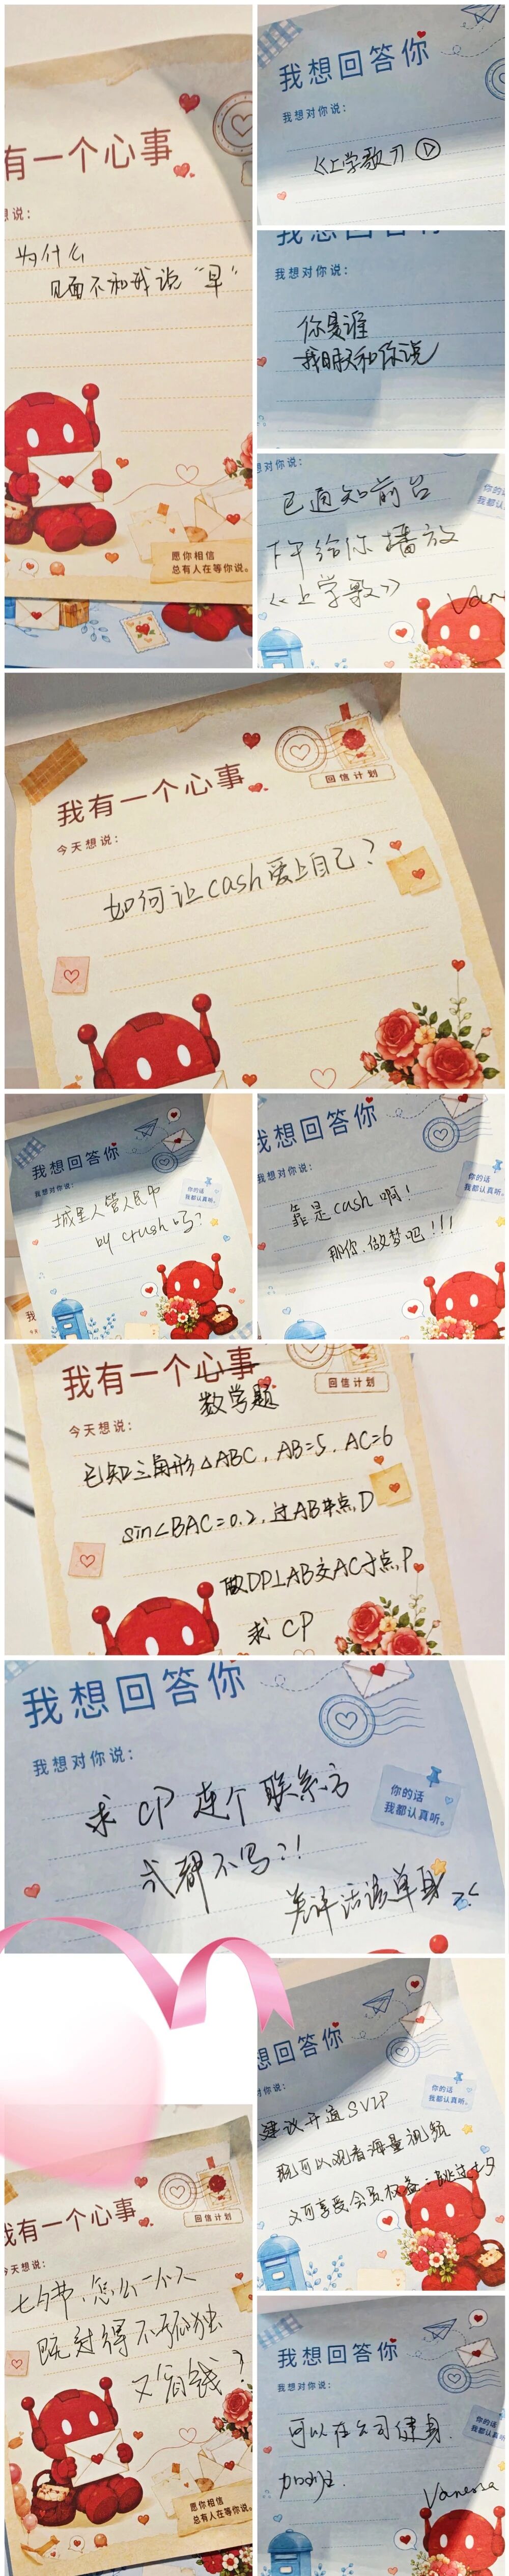 有一个心事
想说：
为什么
见面不和我说“早”
愿你相信
总有人在等你说。
我想回答你
我想对你说：
《上学歌》
我想对你说：
你是谁
我明天和你说
想对你说：
已通知前台
下午给你播放
《上学歌》
你的话
我都认
我有一个心事
今天想说：
回信计划
如何让cash爱上自己？
我想回答你
我想对你说：
你的话
我都认真听。
城里人管人民币
叫crush吗？
我想回答你
我想对你说：
你的话
我都认真听。
靠是cash啊！
那你做梦吧！！！
我有一个心事
数学题
回信计划
今天想说：
已知三角形△ABC，AB=5，AC=6
sin∠BAC=0.2，过AB中点D
做DP⊥AB交AC于点P
求CP
我想回答你
我想对你说：
你的话
我都认真听。
求CP连个联系方
式都不写？！
差评活该单身
想回答你
对你说：
你的话
我都认真听。
建议开通SVIP
既可以观看海量视频
又可享受会员权益：跳过七夕
我有一个心事
今天想说：
回信计划
七夕节，怎么一个人
既显得不孤独
又省钱？
愿你相信
总有人在等你说。
我想回答你
我想对你说：
你的话
我都认真
可以在公司健身
加班
Vanessa